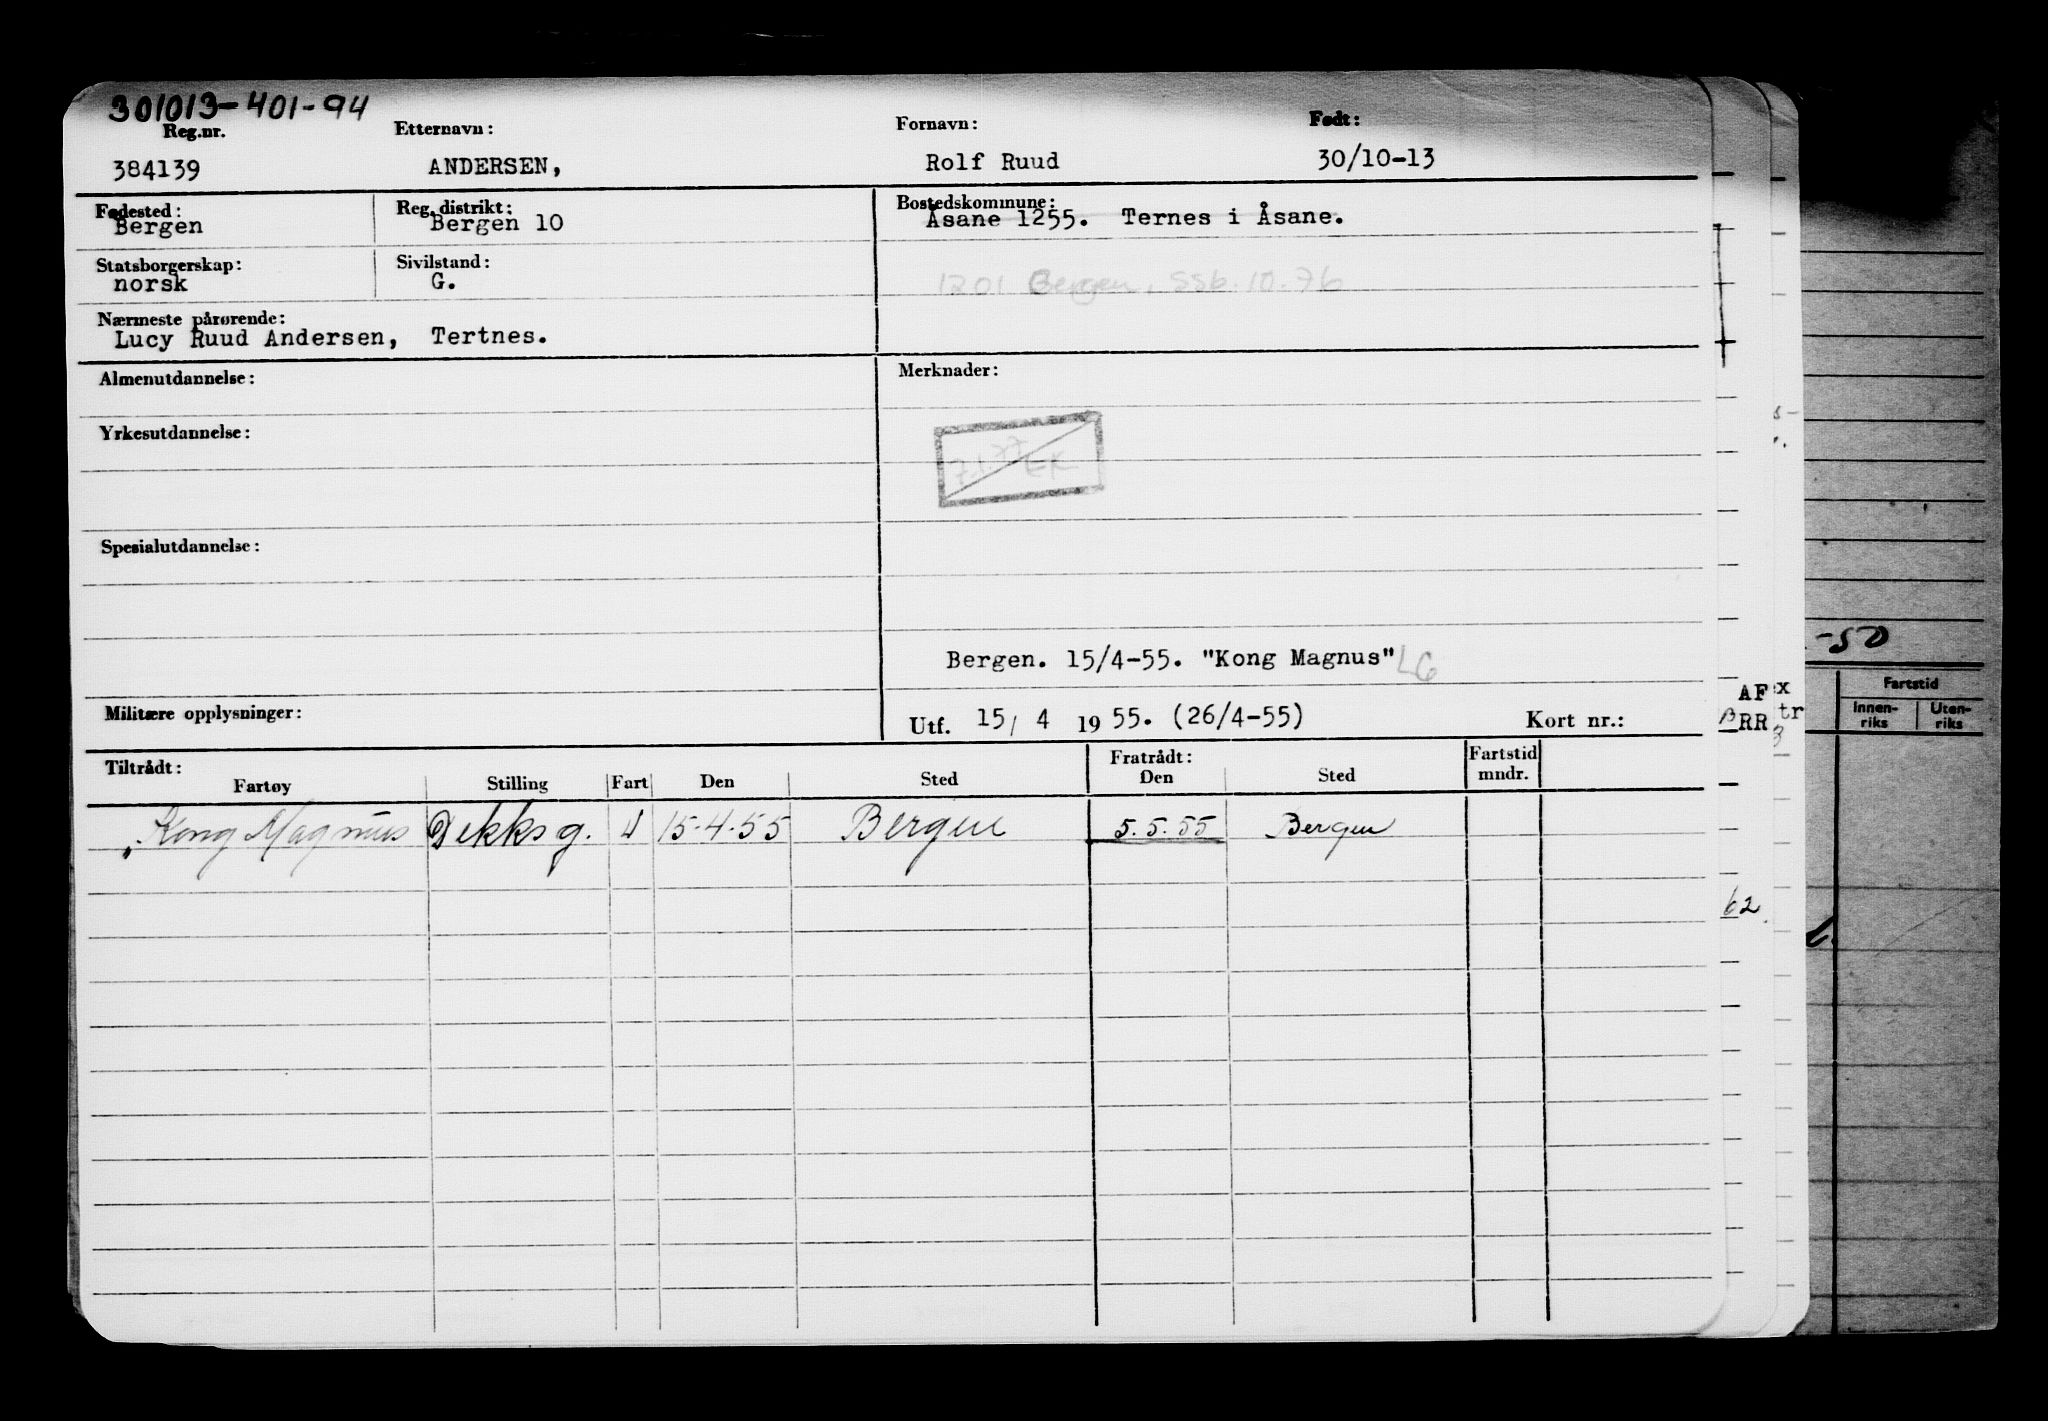 301013-401-94
Reg.nr. Etternavn: Fornavn: Født:
384139 ANDERSEN, Rolf Ruud 30/10-13
Fødested: Reg. distrikt: Bostedskommune:
Bergen Bergen 10 Åsane 1255. Ternes i Åsane.
Statsborgerskap: Sivilstand:
norsk G. 1201 Bergen, SSb. 10.76
Nærmeste pårørende:
Lucy Ruud Andersen, Tertnes.
Almenutdannelse: Merknader:
Yrkesutdannelse:
7.1.77 EK
Spesialutdannelse:
Bergen. 15/4-55. "Kong Magnus" LG
Militære opplysninger: Utf. 15/ 4 1955. (26/4-55) Kort nr.:
Tiltrådt: Fratrådt: Fartstid
Fartøy Stilling Fart Den Sted Den Sted mndr.
Kong Magnus Dekksg. 15.4.55 Bergen 5.5.55 Bergen
-50
Fartstid
Innen-riks Uten-riks
AF
RR
tr
62